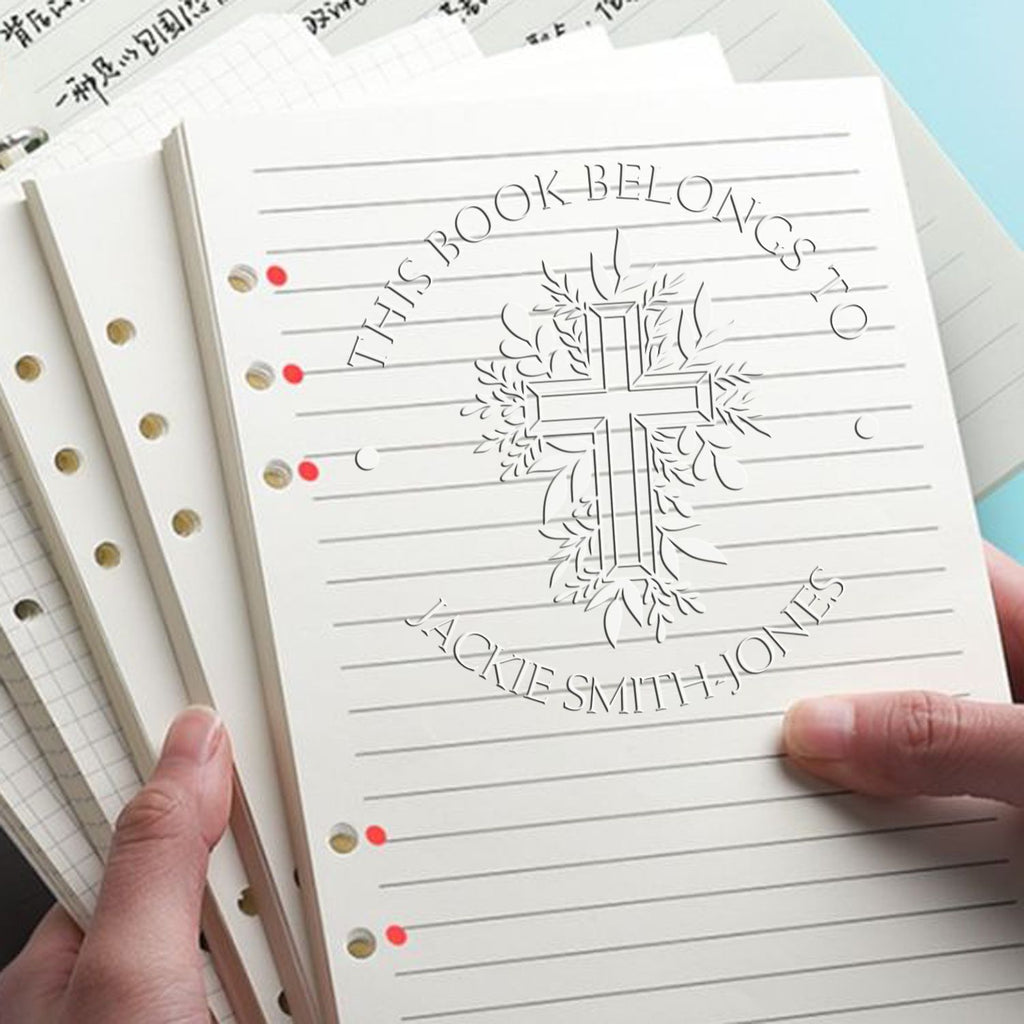 一种足以包围
THIS BOOK BELONGS TO
JACKIE SMITH-JONES